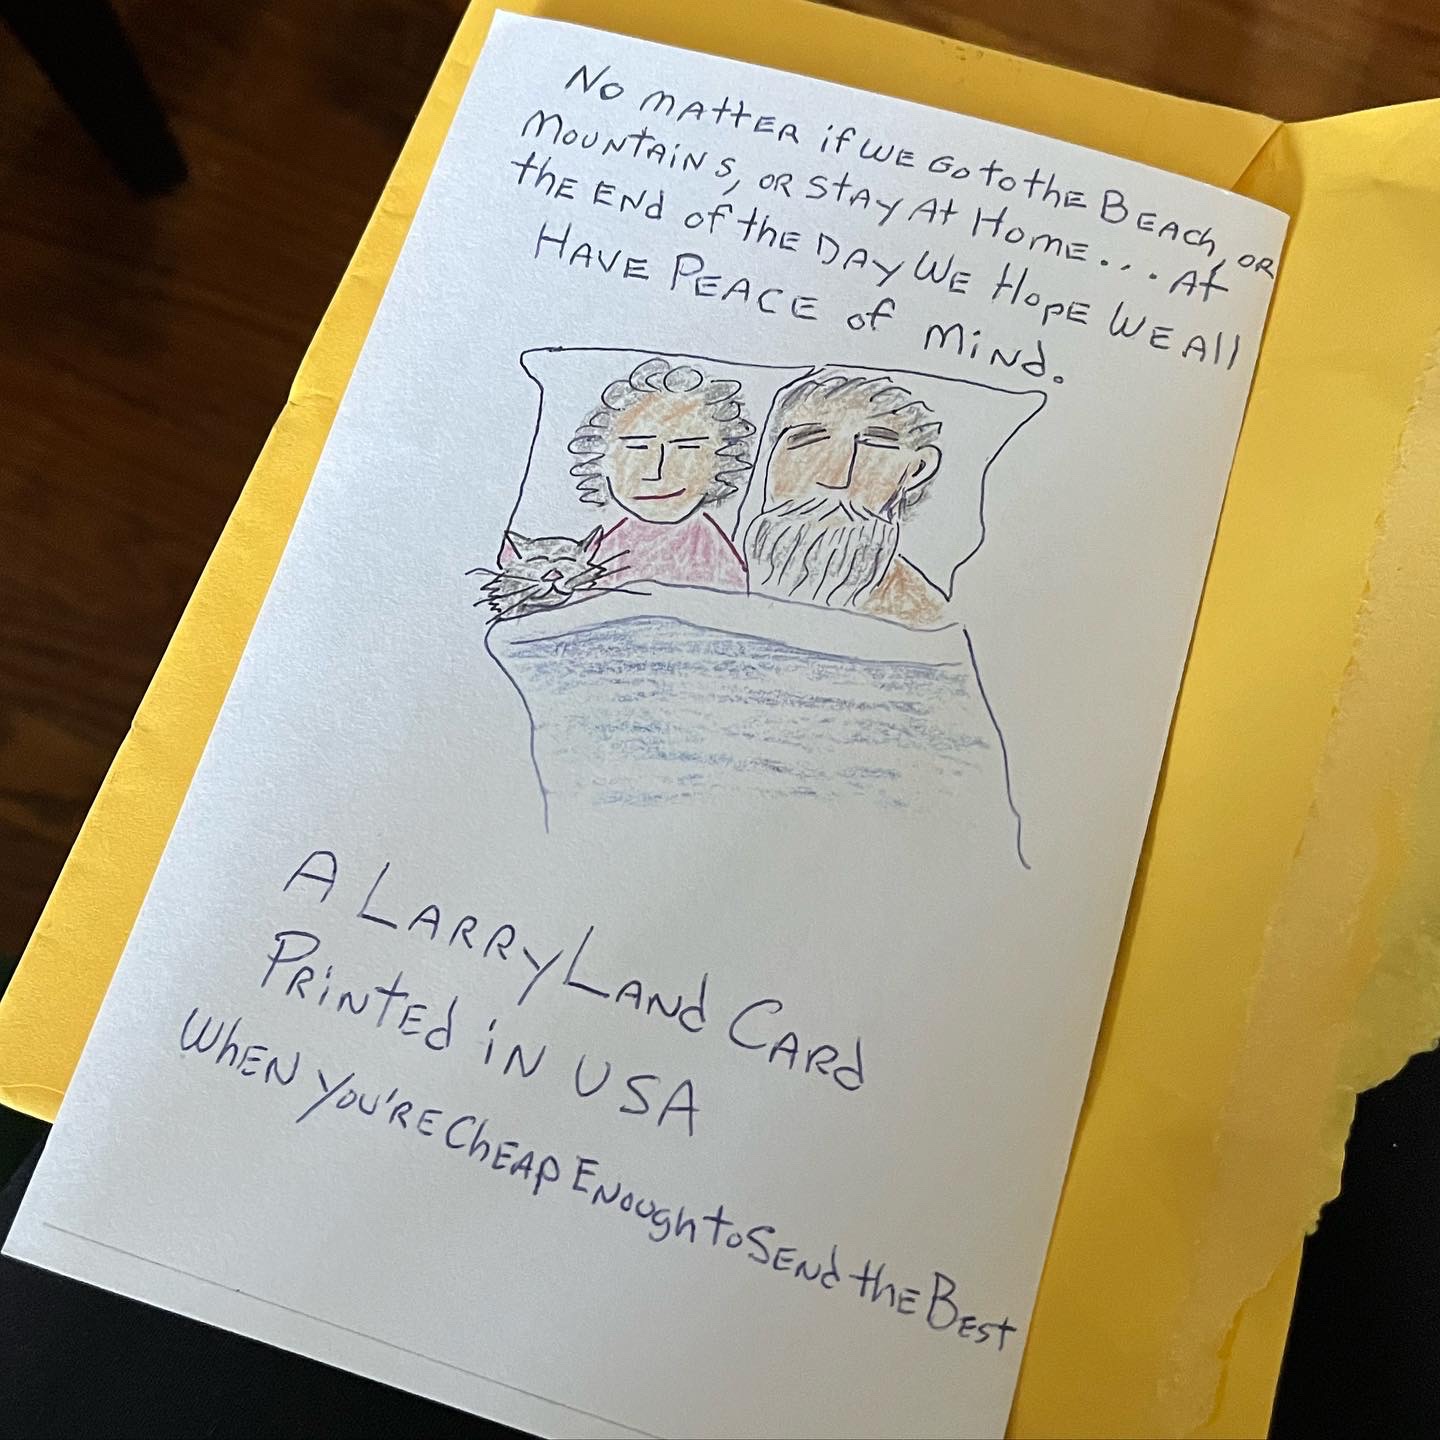 No matter if we go to the Beach, or
Mountains, or stay at Home... At
the end of the Day We Hope We All
Have Peace of Mind.
A LarryLand Card
Printed in USA
When You're Cheap Enough to Send the Best